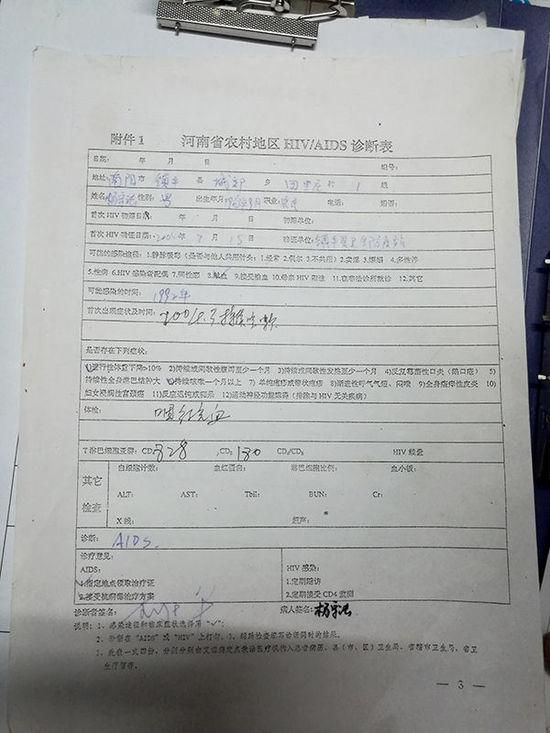 附件1 河南省农村地区 HIV/AIDS 诊断表
日期: 年 月 日 编号:
地址: 南阳 市 镇平 县 城郊 乡 村 1 组
姓名 性别: 男 出生年月 职业: 电话: 婚否:
首次 HIV 初筛日期: 年 月 日 初筛单位:
首次 HIV 确证日期: 年 7 月 15 日 确证单位:
可能感染途径: 1.静脉吸毒 (是否与他人共用针头: 1.经常 2.偶尔 3.不共用) 2.卖淫 3.嫖娼 4.多性伴
5.性病 6.HIV 感染者配偶 7.同性恋 8.献血 9.接受输血 10.母亲 HIV 阳性 11.在非法诊所就诊 12.其它
可能感染的时间: 1992年
首次出现症状及时间:
是否存在下列症状:
1)进行性体重下降>10% 2)持续或间歇性腹泻至少一个月 3)持续或间歇性发热至少一个月 4)反复霉菌性口炎 (鹅口疮) 5)
持续性全身淋巴结肿大 6)持续咳嗽一个月以上 7) 单纯疱疹或带状疱疹 8)渐进性呼气气短、闷喘 9)全身瘙痒性皮炎 10)
妇女浸润性宫颈癌 11)反应迟钝或痴呆 12)运动神经功能障碍 (排除与 HIV 无关疾病)
体检: 咽红充血
T 淋巴细胞亚群: CD 328 CD 130 CD₄/CD₈ HIV 载量
其它检查
白细胞计数: 血红蛋白: 淋巴细胞比例: 血小板:
ALT: AST: Tbil: BUN: Cr:
X 线: 超声:
诊断: AIDS.
诊疗意见:
AIDS: HIV 感染:
1.指定地点领取治疗证 1.定期随访
2.接受抗病毒治疗方案 2.定期接受 CD4 监测
诊断者签名: 病人签名:
说明: 1、感染途径和临床症状选择用“✓”;
2、诊断在“AIDS”或“HIV”上打钩。
3、此表一式四份,
— 3 —